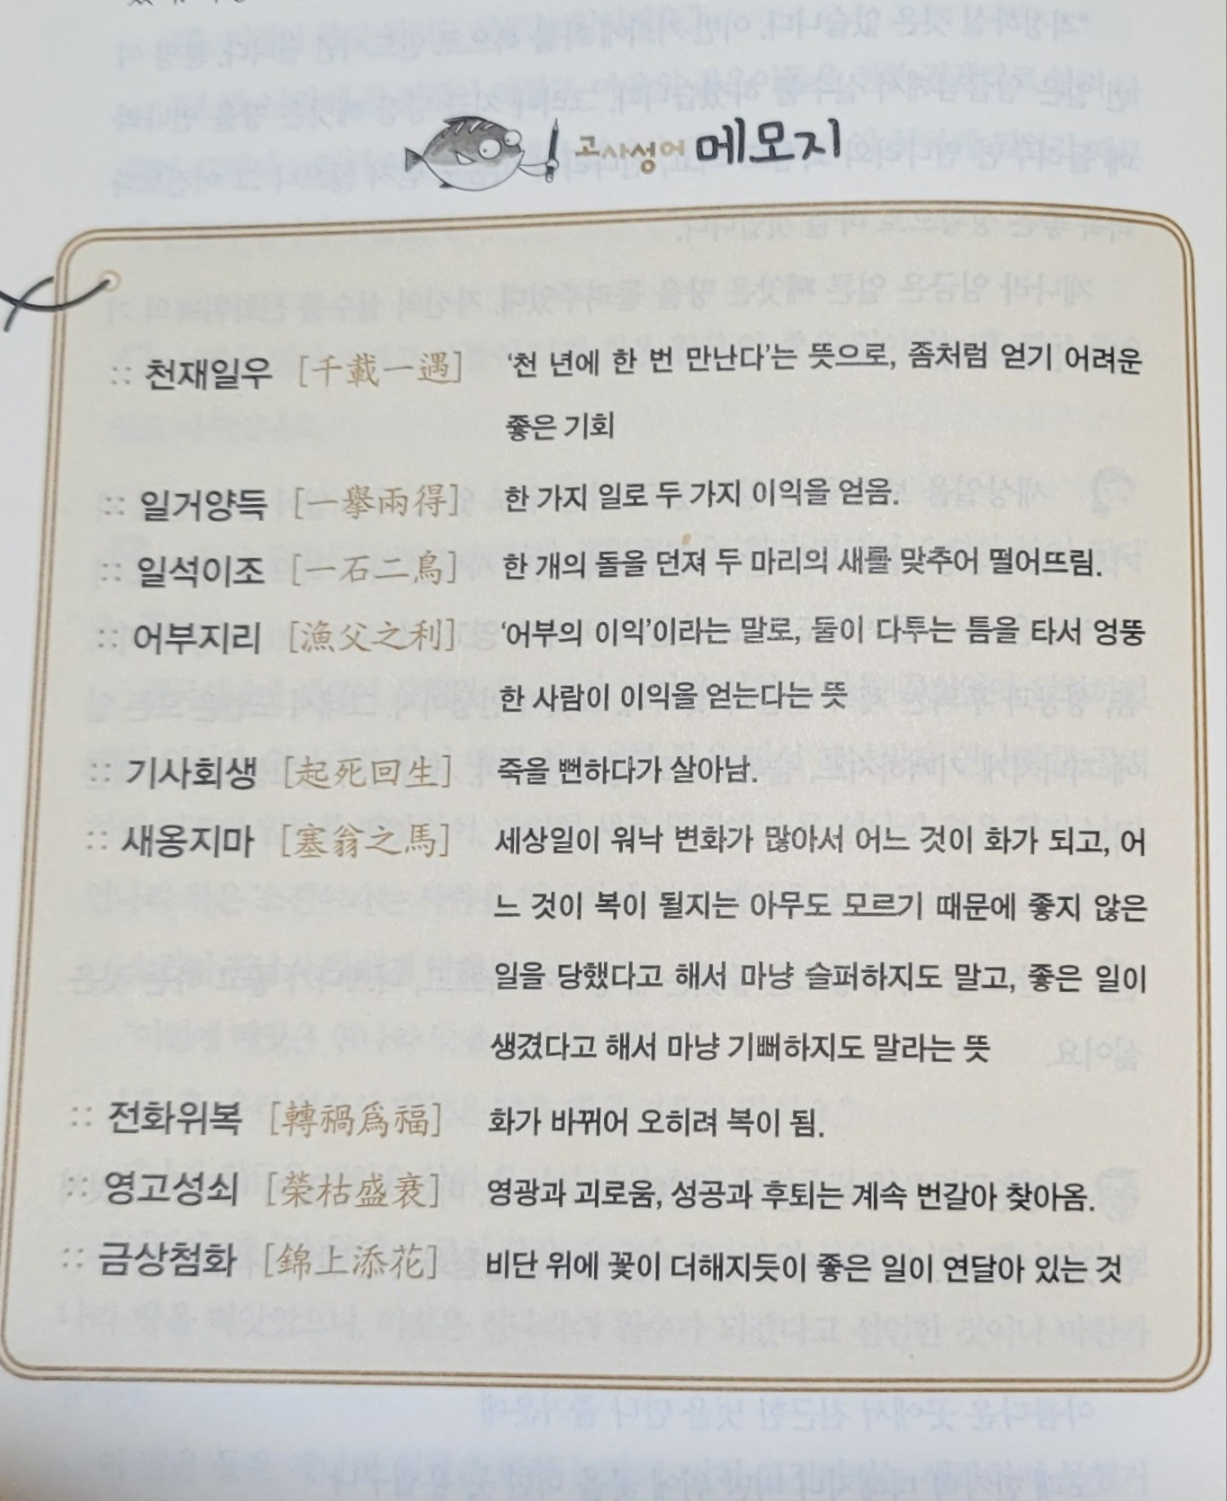 고사성어 메모지
:: 천재일우 [千載一遇] ‘천 년에 한 번 만난다’는 뜻으로, 좀처럼 얻기 어려운
좋은 기회
:: 일거양득 [一擧兩得] 한 가지 일로 두 가지 이익을 얻음.
:: 일석이조 [一石二鳥] 한 개의 돌을 던져 두 마리의 새를 맞추어 떨어뜨림.
:: 어부지리 [漁父之利] ‘어부의 이익’이라는 말로, 둘이 다투는 틈을 타서 엉뚱
한 사람이 이익을 얻는다는 뜻
:: 기사회생 [起死回生] 죽을 뻔하다가 살아남.
:: 새옹지마 [塞翁之馬] 세상일이 워낙 변화가 많아서 어느 것이 화가 되고, 어
느 것이 복이 될지는 아무도 모르기 때문에 좋지 않은
일을 당했다고 해서 마냥 슬퍼하지도 말고, 좋은 일이
생겼다고 해서 마냥 기뻐하지도 말라는 뜻
:: 전화위복 [轉禍爲福] 화가 바뀌어 오히려 복이 됨.
:: 영고성쇠 [榮枯盛衰] 영광과 괴로움, 성공과 후퇴는 계속 번갈아 찾아옴.
:: 금상첨화 [錦上添花] 비단 위에 꽃이 더해지듯이 좋은 일이 연달아 있는 것